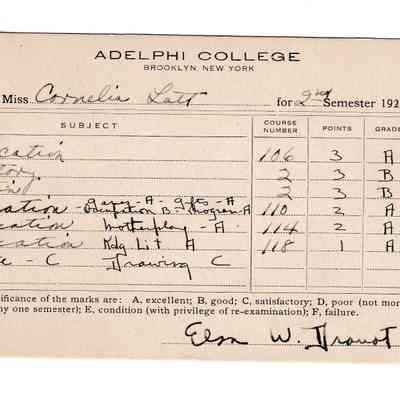 ADELPHI COLLEGE
BROOKLYN, NEW YORK
Miss Cornelia Latt for 2nd Semester 192
SUBJECT COURSE NUMBER POINTS GRADE
cation 106 3 A
tory 2 3 B
in 2 3 B
cation - Games - A - Gifts - A Occupation B - Program - A 110 2 A
cation Motherplay - A 114 2 A
cation Kdg Lit A 118 1 A
e - C Drawing C
nificance of the marks are: A, excellent; B, good; C, satisfactory; D, poor (not mor
ny one semester); E, condition (with privilege of re-examination); F, failure.
Elsa W. Drouot